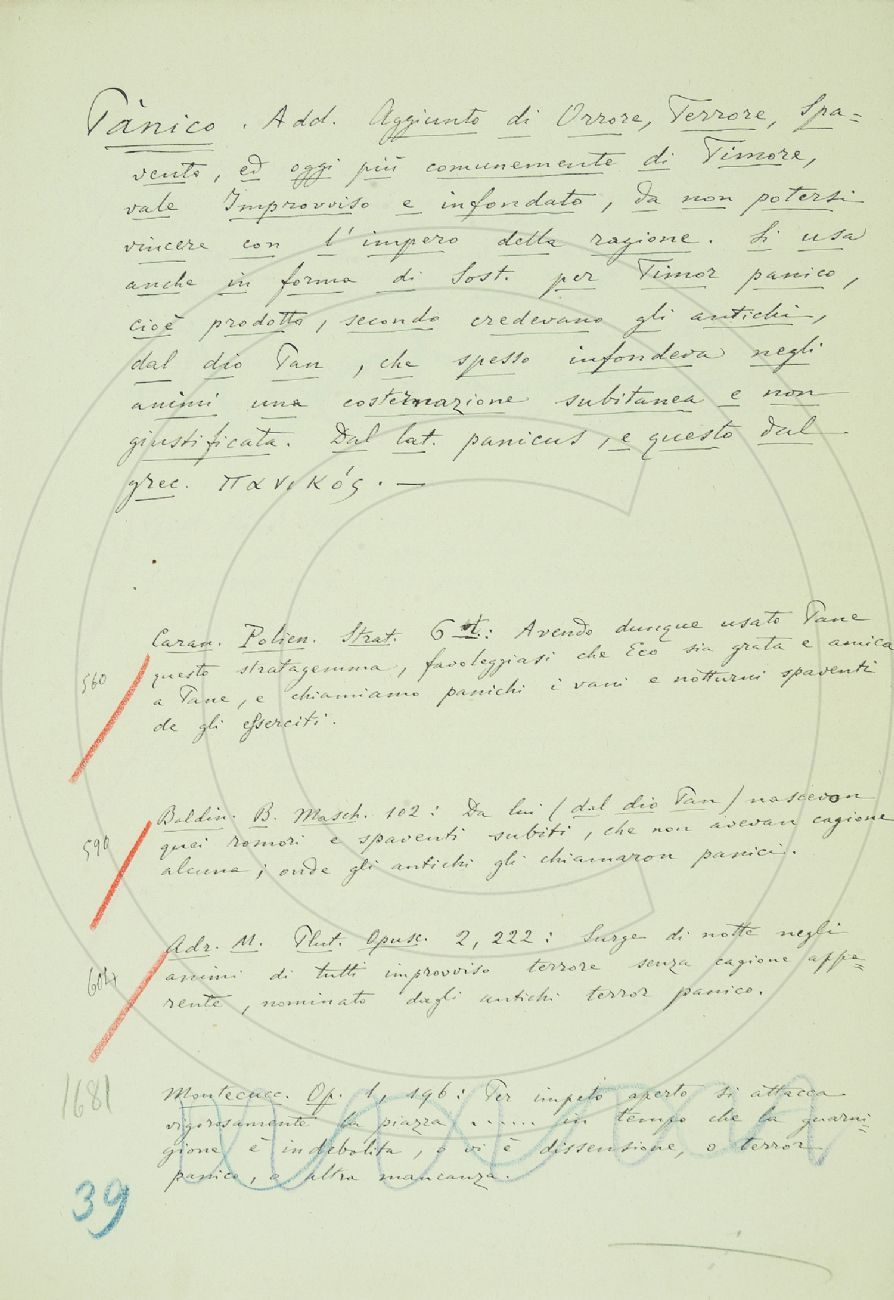 Pànico. Add. Aggiunto di Orrore, Terrore, Spa=
vento, ed oggi più comunemente di Timore,
vale Improvviso e infondato, da non potersi
vincere con l'impero della ragione. Si usa
anche in forma di Sost. per Timor panico,
cioè prodotto, secondo credevano gli antichi,
dal dio Pan, che spesso infondeva negli
animi una costernazione subitanea e non
giustificata. Dal lat. panicus, e questo dal
grec. πανικός. —
Caran. Polien. Strat. 6: Avendo dunque usato Pane
560 questo stratagemma, favoleggiasi che Eco sia grata e amica
a Pane, e chiamiamo panichi i vani e notturni spaventi
de gli esserciti.
Baldin. B. Masch. 102: Da lui (dal dio Pan) nascevon
590 quei romori e spaventi subiti, che non avevan cagione
alcuna; onde gli antichi gli chiamaron panici.
Adr. M. Plut. Opusc. 2, 222: Surge di notte negli
604 animi di tutti improvviso terrore senza cagione appa=
rente, nominato dagli antichi terror panico.
1681 Montecucc. Op. 1, 196: Per impeto aperto si attacca
vigorosamente la piazza ...... in tempo che la guarni=
gione è indebolita, o vi è dissensione, o terror
panico, o altra mancanza.
39